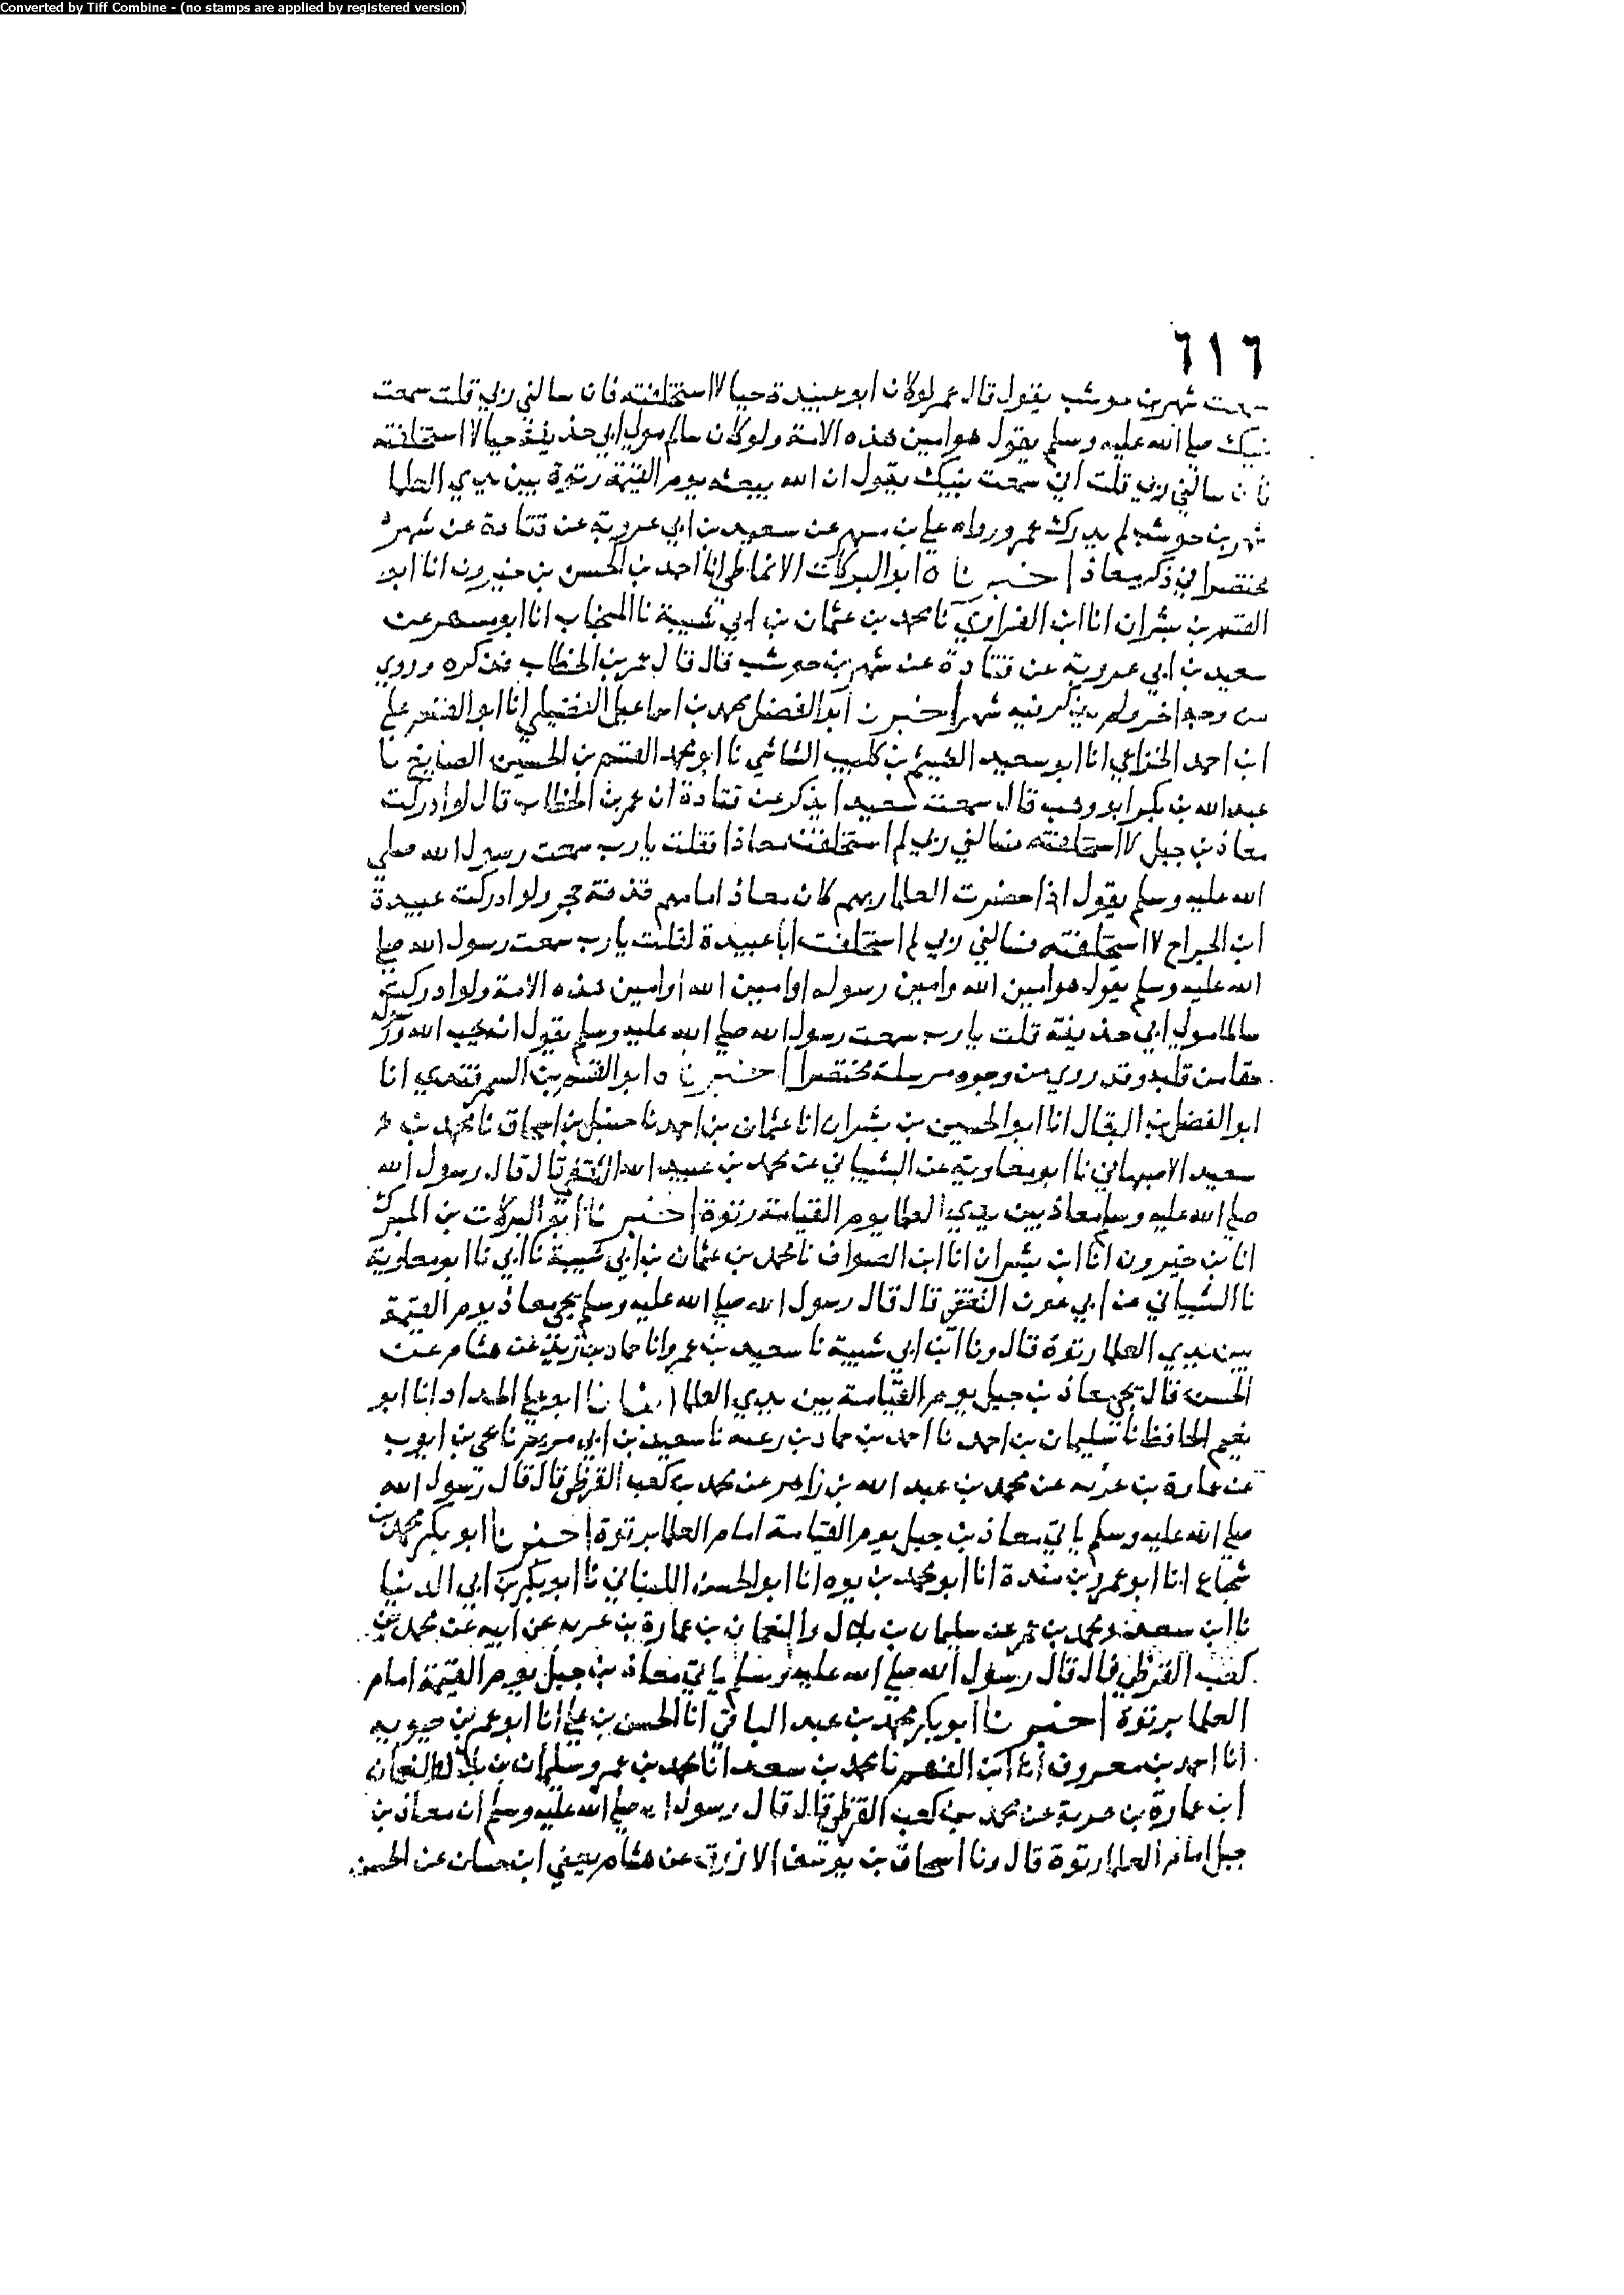 Converted by Tiff Combine - (no stamps are applied by registered version)
٦١٦
سمعت شهر بن حوشب يقول قال عمر لو كان ابو عبيدة حيا لاستخلفته فان سالني ربي قلت سمعت
نبيك صلى الله عليه وسلم يقول هو امين هذه الامة ولو كان سالم مولى ابي حذيفة حيا لاستخلفته
فان سالني ربي قلت اني سمعت نبيك يقول ان الله يبعثه يوم القيمة رتوة بين يدي العلما
شهر بن حوشب لم يدرك عمر ورواه علي بن مسهر عن سعيد بن ابي عروبة عن قتادة عن شهر
مختصرا في ذكر معاذ اخبرناه ابو البركات الانماطي انا احمد بن الحسن بن خيرون انا ابو
القسم بن بشران انا ابن نا محمد بن عثمان بن ابي شيبة نا المنجاب انا ابو مسهر عن
سعيد بن ابي عروبة عن قتادة عن شهر بن حوشب قال قال عمر بن الخطاب فذكره وروي
من وجه اخر ولم يذكر فيه شهرا اخبرنا ابو الفضل محمد بن اسماعيل الفضيلي انا ابو القسم علي
ابن احمد الخزاعي انا ابو سعيد الهيثم بن كليب الشاشي نا ابو محمد القسم بن الحسين الصايغ نا
عبد الله بن بكر ابو وهب قال سمعت سعيدا يذكر عن قتادة ان عمر بن الخطاب قال لو ادركت
معاذ بن جبل لاستخلفته فسالني ربي لم استخلفت معاذا فقلت يا رب سمعت رسول الله صلى
الله عليه وسلم يقول اذا حضرت العلما ربهم كان معاذ امامهم قذفة حجر ولو ادركت عبيدة
ابن الجراح لاستخلفته فسالني ربي لم استخلفت ابا عبيدة لقلت يا رب سمعت رسول الله صلى
الله عليه وسلم يقول هو امين الله وامين رسوله او امين الله او امين هذه الامة ولو ادركت
سالما مولى ابي حذيفة قلت يا رب سمعت رسول الله صلى الله عليه وسلم يقول انه يحب الله ورسوله
حقا من قلبه وقد روي من وجوه مرسلة مختصرا اخبرناه ابو القسم بن السمرقندي انا
ابو الفضل بن البقال انا ابو الحسين بن بشران انا عثمان بن احمد نا حنبل بن اسحاق نا محمد بن
سعيد الاصبهاني نا ابو معاوية عن الشيباني عن محمد بن عبيد الله الثقفي قال قال رسول الله
صلى الله عليه وسلم معاذ بين يدي العلما يوم القيامة رتوة اخبرنا ابو البركات بن المبرك
انا بن خيرون انا ابن بشران انا ابن الصواف نا محمد بن عثمان بن ابي شيبة نا ابي نا ابو معاوية
نا الشيباني عن ابي عون الثقفي قال قال رسول الله صلى الله عليه وسلم يجي معاذ يوم القيمة
بين يدي العلما رتوة قال ونا ابن ابي شيبة نا سعيد بن عمرو انا حماد بن زيد عن هشام عن
الحسن قال يجي معاذ بن جبل يوم القيامة بين يدي العلما انبانا ابو علي الحداد انا ابو
نعيم الحافظ نا سليمان بن احمد نا احمد بن حماد بن زغبه نا سعيد بن ابي مريم نا يحيى بن ايوب
عن عمارة بن غزيه عن محمد بن عبد الله بن زاهر عن محمد بن كعب القرظي قال قال رسول الله
صلى الله عليه وسلم ياتي معاذ بن جبل يوم القيامة امام العلما برتوة اخبرنا ابو بكر محمد بن
شجاع انا ابو عمرو بن مندة انا ابو محمد بن يوه انا ابو الحسن اللنباني نا ابو بكر بن ابي الدنيا
نا ابن سعد نا محمد بن عمر عن سليمان بن بلال والنعمان بن عمارة بن غزيه عن ابيه عن محمد بن
كعب القرظي قال قال رسول الله صلى الله عليه وسلم ياتي معاذ بن جبل يوم القيمة امام
العلما برتوة اخبرنا ابو بكر محمد بن عبد الباقي انا الحسن بن علي انا ابو عمر بن حيويه
انا احمد بن معروف انا ابن الفهم نا محمد بن سعد انا محمد بن عمر وسليمان بن بلال والنعمان
ابن عمارة بن غزية عن محمد بن كعب القرظي قال قال رسول الله صلى الله عليه وسلم ان معاذ بن
جبل امام العلما رتوة قال ونا اسحاق بن يوسف الازرق عن هشام يعني ابن حسان عن الحسن